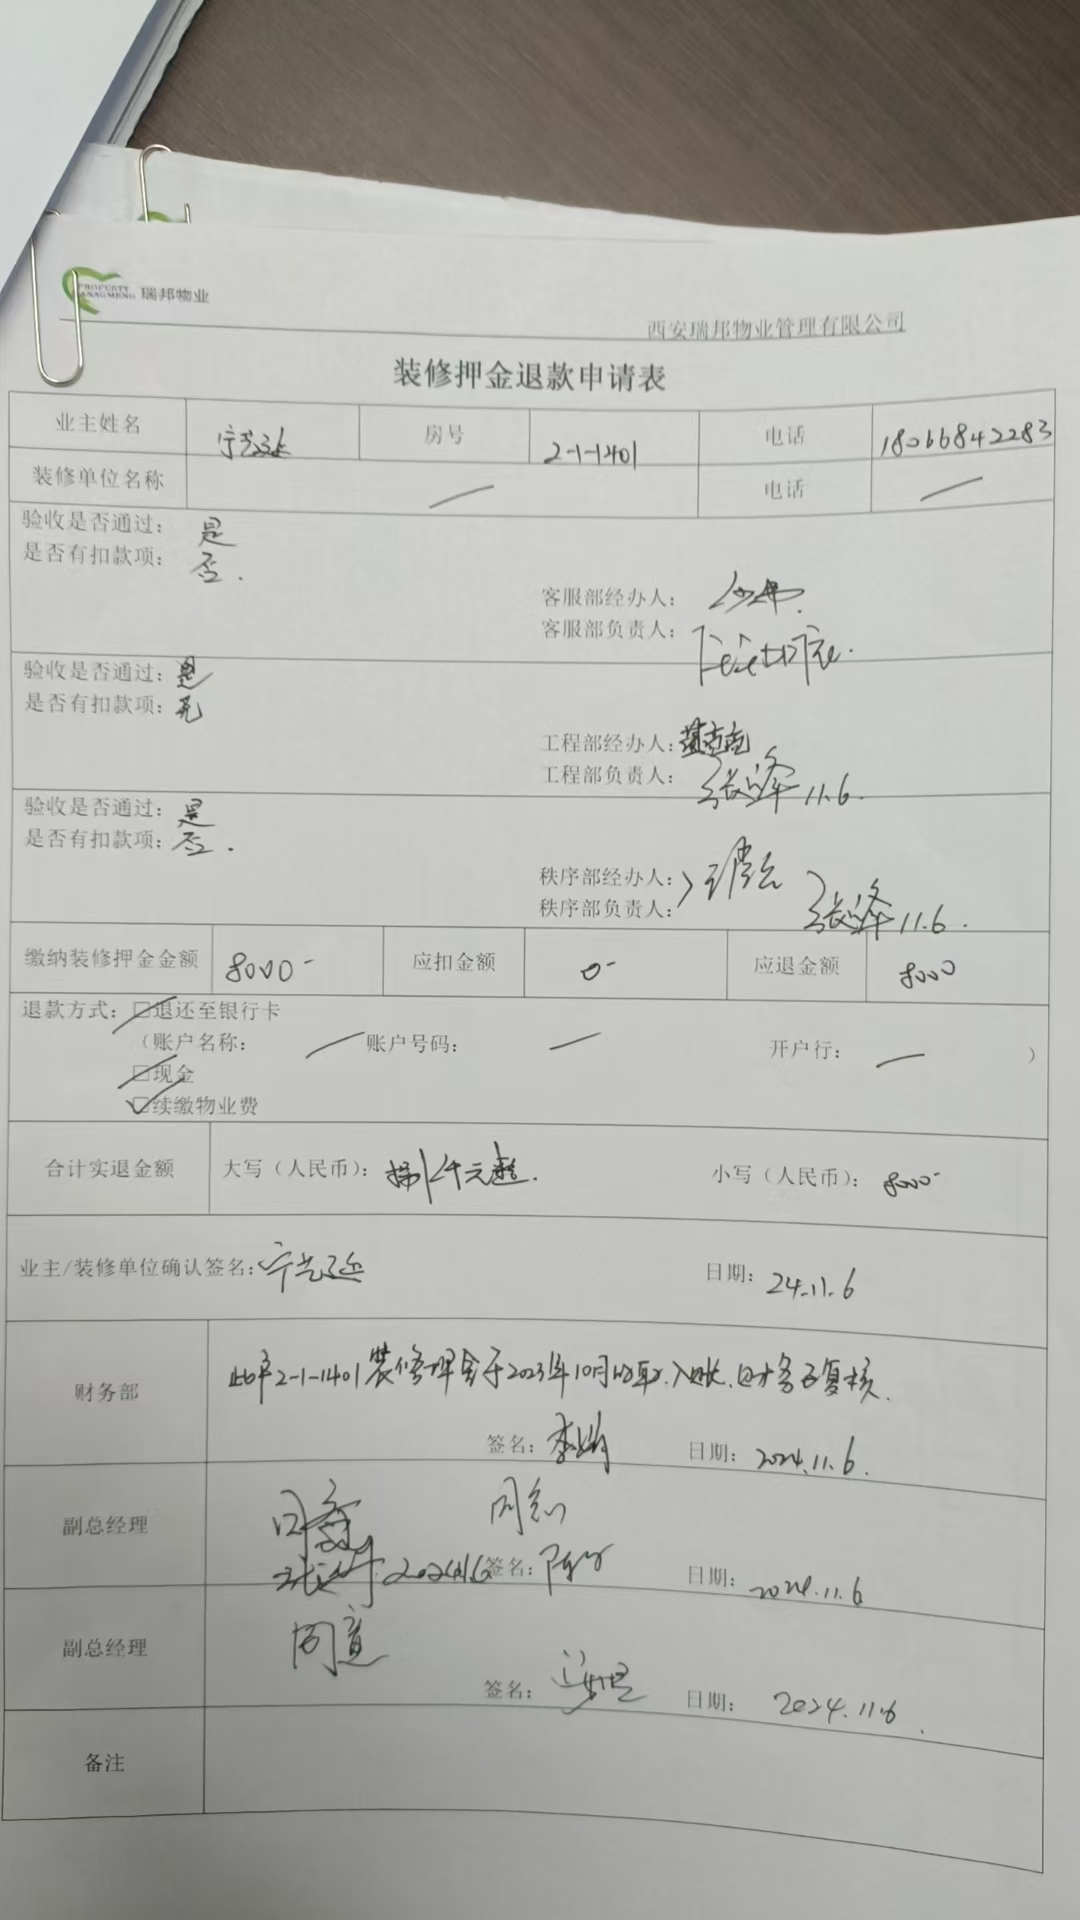 PROPERTY
MANAGMENG 瑞邦物业
西安瑞邦物业管理有限公司
装修押金退款申请表
业主姓名 宁艺延 房号 2-1-1401 电话 18066842283
装修单位名称 / 电话 /
验收是否通过: 是
是否有扣款项: 否.
客服部经办人:
客服部负责人:
验收是否通过: 是
是否有扣款项: 无
工程部经办人:
工程部负责人: 张峰 11.6.
验收是否通过: 是
是否有扣款项: 否.
秩序部经办人:
秩序部负责人: 张峰 11.6.
缴纳装修押金金额 8000- 应扣金额 0- 应退金额 8000
退款方式: □退还至银行卡
(账户名称: / 账户号码: / 开户行: / )
□现金
☑续缴物业费
合计实退金额 大写(人民币): 捌仟元整. 小写(人民币): 8000-
业主/装修单位确认签名: 宁艺延 日期: 24.11.6
财务部 此户2-1-1401装修押金于2023年10月收取入账,财务已复核.
签名: 李娟 日期: 2024.11.6.
副总经理 同意 同意
2024.11.6 签名: 日期: 2024.11.6
副总经理 同意
签名: 日期: 2024.11.6.
备注